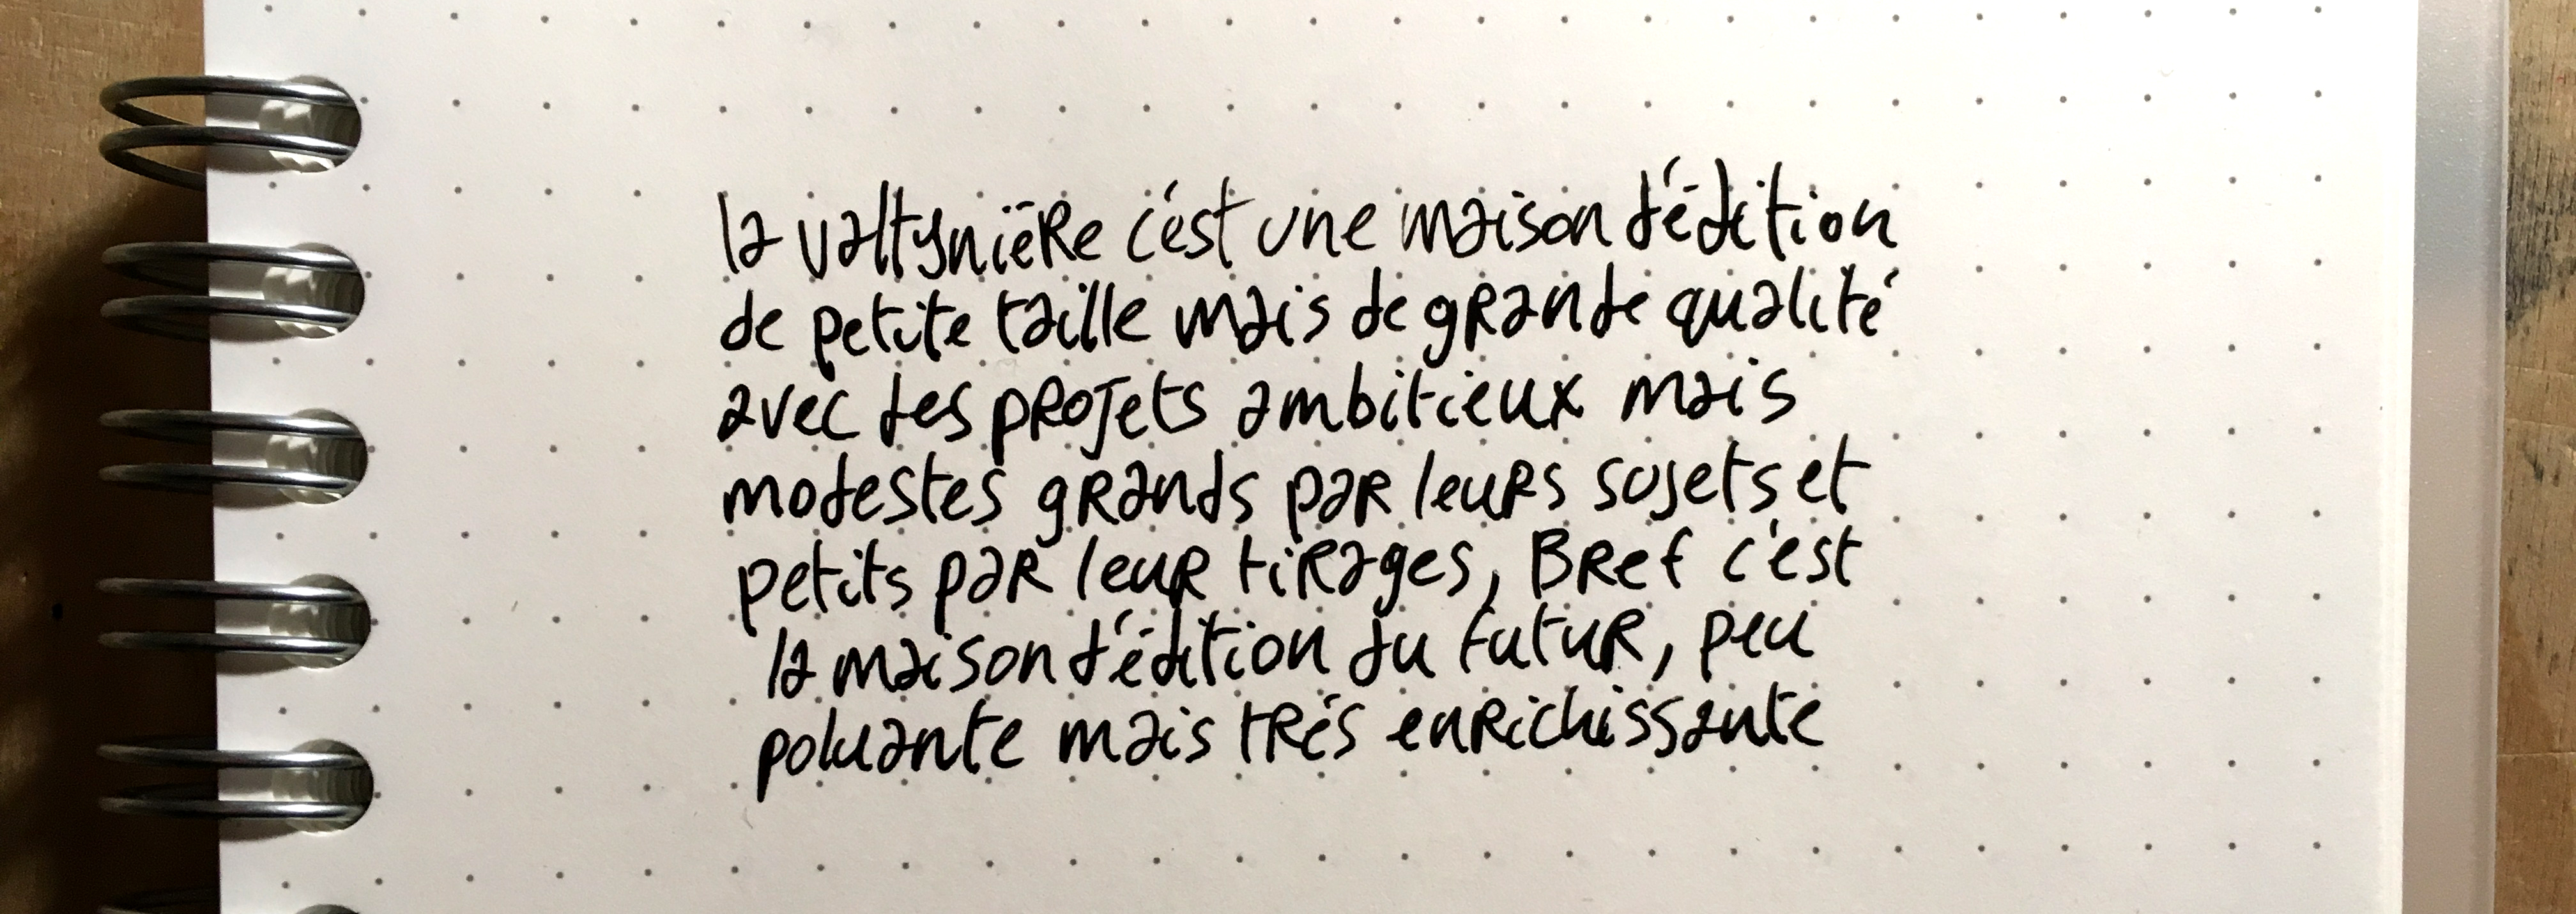 la valtynière c'est une maison d'édition
de petite taille mais de grande qualité
avec des projets ambitieux mais
modestes grands par leurs sujets et
petits par leur tirages, Bref c'est
la maison d'édition du futur, peu
poluante mais trés enrichissante